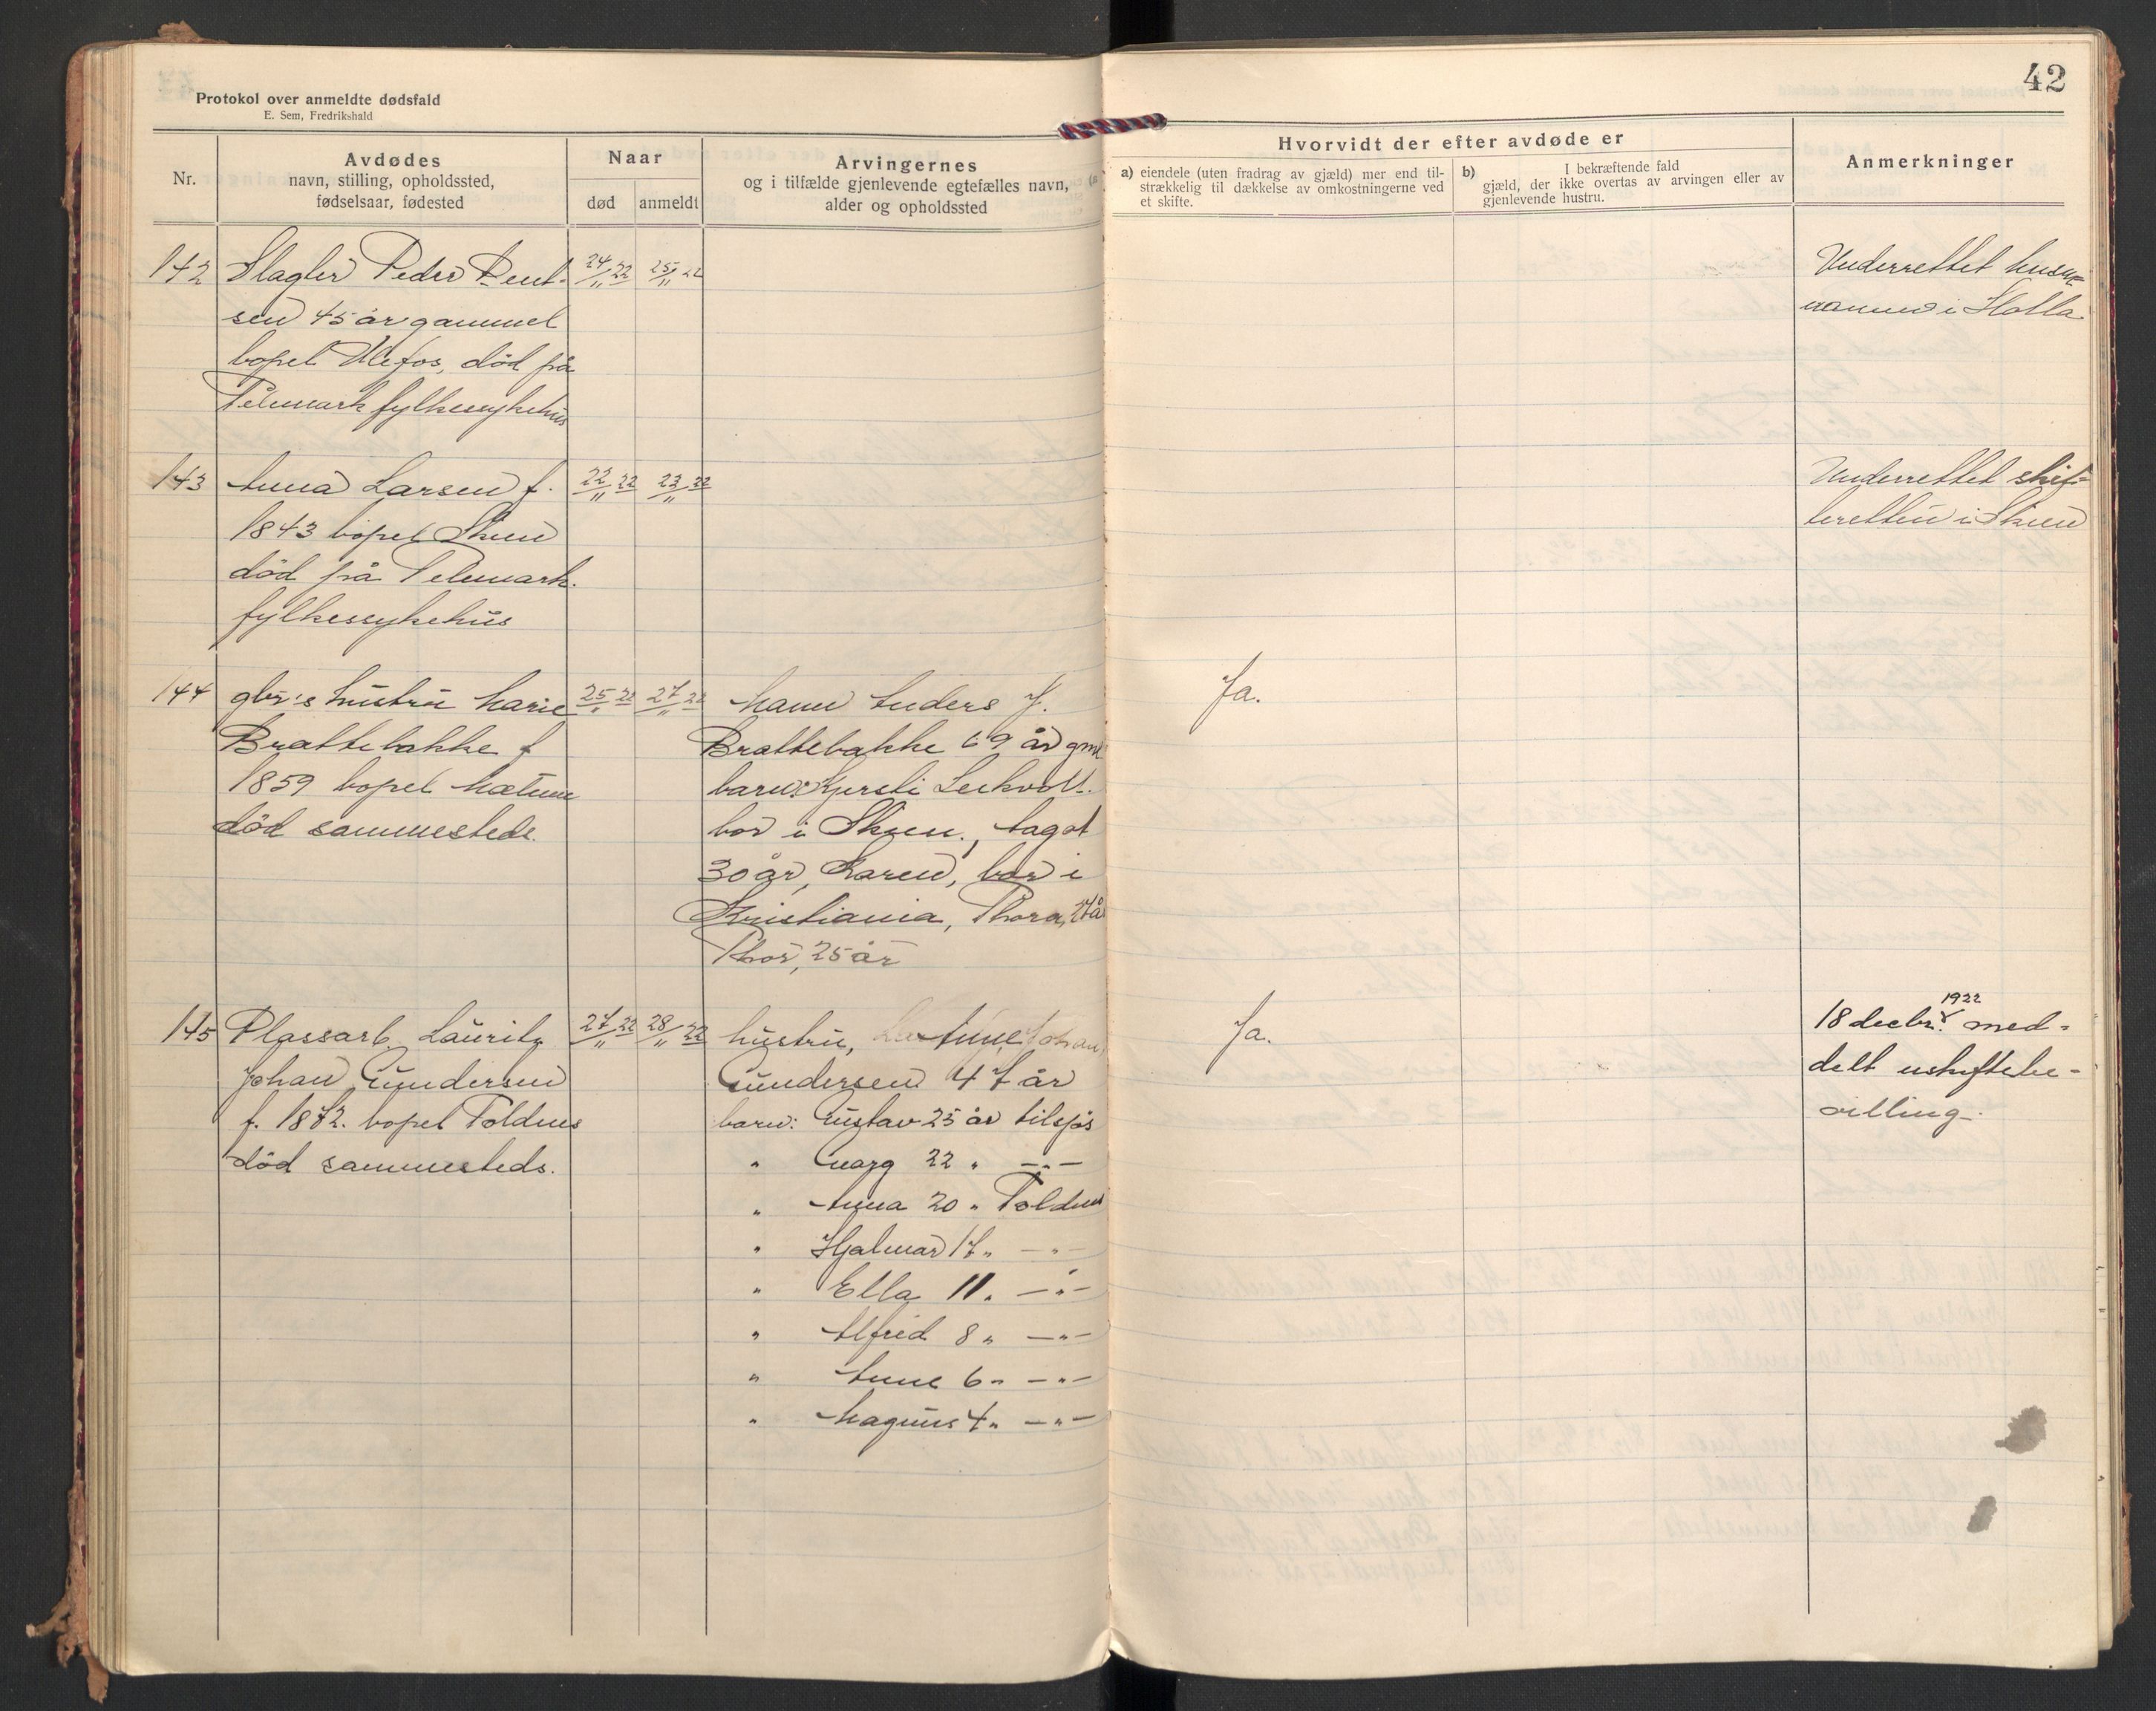 42
Protokol over anmeldte dødsfald
E. Sem, Fredrikshald
Nr.
Avdødes
navn, stilling, opholdssted,
fødselsaar, fødested
Naar
død
anmeldt
Arvingernes
og i tilfælde gjenlevende egtefælles navn,
alder og opholdssted
Hvorvidt der efter avdøde er
a) eiendele (uten fradrag av gjæld) mer end til-
strækkelig til dækkelse av omkostningerne ved
et skifte.
b) I bekræftende fald
gjæld, der ikke overtas av arvingen eller av
gjenlevende hustru.
Anmerkninger
142 Slagter Peder Bent- 24/11 22 25/11 22 Underrettet
sen 45 år gammel i Holla
bopel Ulefos, død på
Telemark fylkessykehus
143 Anna Larsen f. 22/11 22 23/11 22 Underrettet skif-
1843 bopel Skien teretten i Skien
død på Telemark.
fylkessykehus
144 gbr's hustru Marie 25/11 22 27/11 22 Mann Anders J. Ja.
Brattebakke f Brattebakke 69 år gml
1859 bopel Mælum barn: Kjersti
død sammesteds. bor i Skien, Aagot
30 år, Karen, bor i
Kristiania, Thora, 27 å
Thor, 25 år
145 Plassarb. Lauritz 27/11 22 28/11 22 hustru, Anne Johan Ja. 18 decbr. 1922 med-
Johan Gundersen Gundersen 47 år delt uskiftebe-
f. 1872. bopel Toldnes barn: Gustav 25 år tilsjøs villing.
død sammesteds. " 22 " —"—
" Anna 20 " Toldnes
" Hjalmar 17 " —"—
" Ella 11 " —"—
" Alfred 8 " —"—
" Anne 6 " —"—
" Magnus 4 " —"—